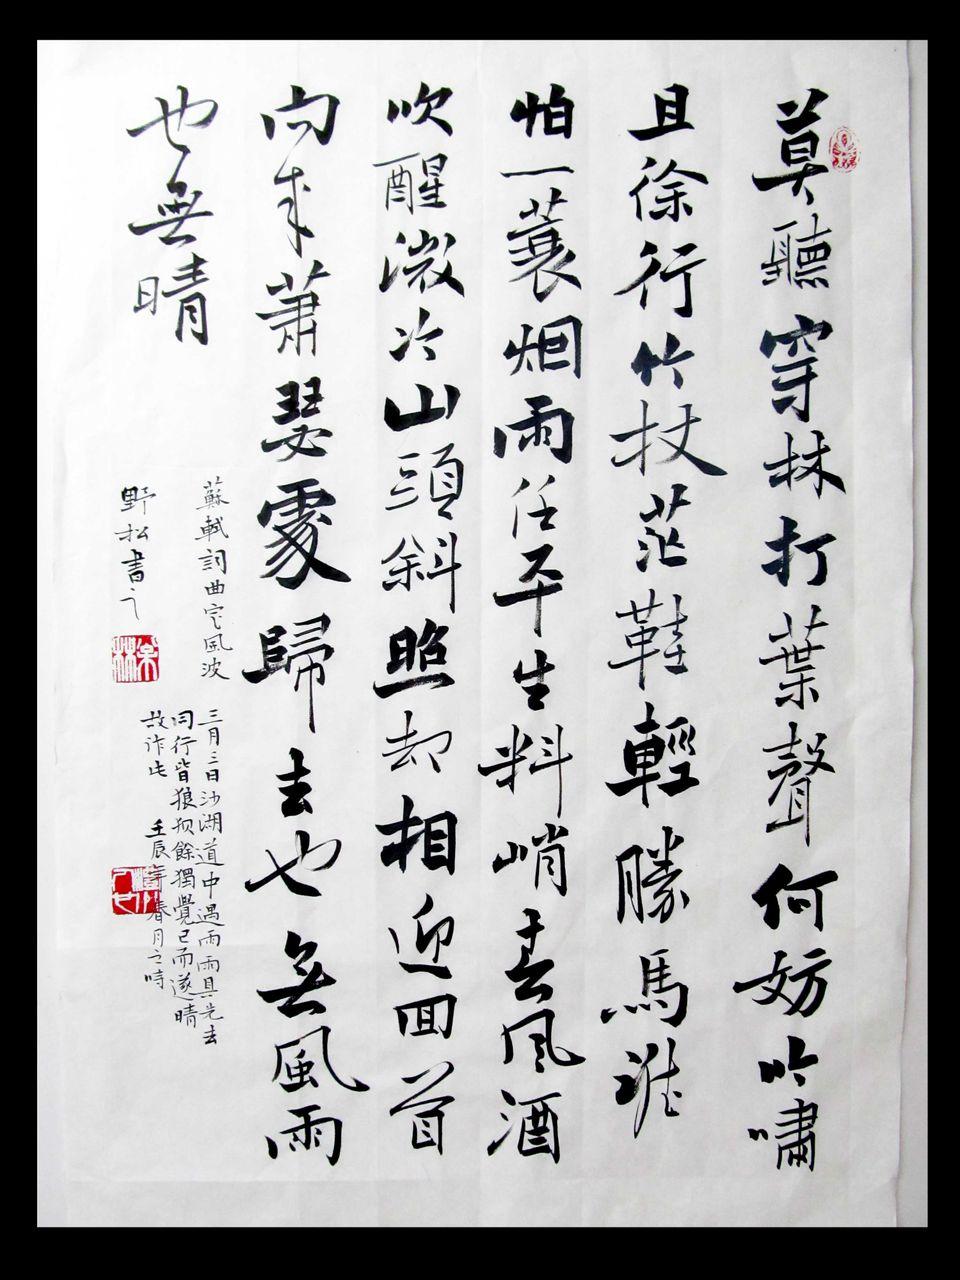 莫聽穿林打葉聲何妨吟嘯
且徐行竹杖茫鞋輕勝馬誰
怕一蓑烟雨任平生料峭春風酒
吹醒微冷山頭斜照却相迎回首
向来蕭瑟處歸去也無風雨
也無晴
蘇軾詞曲定風波
三月三日沙湖道中遇雨雨具先去
同行皆狼狽餘獨覺已而遂晴
故作此 壬辰年春月之時
野松書之